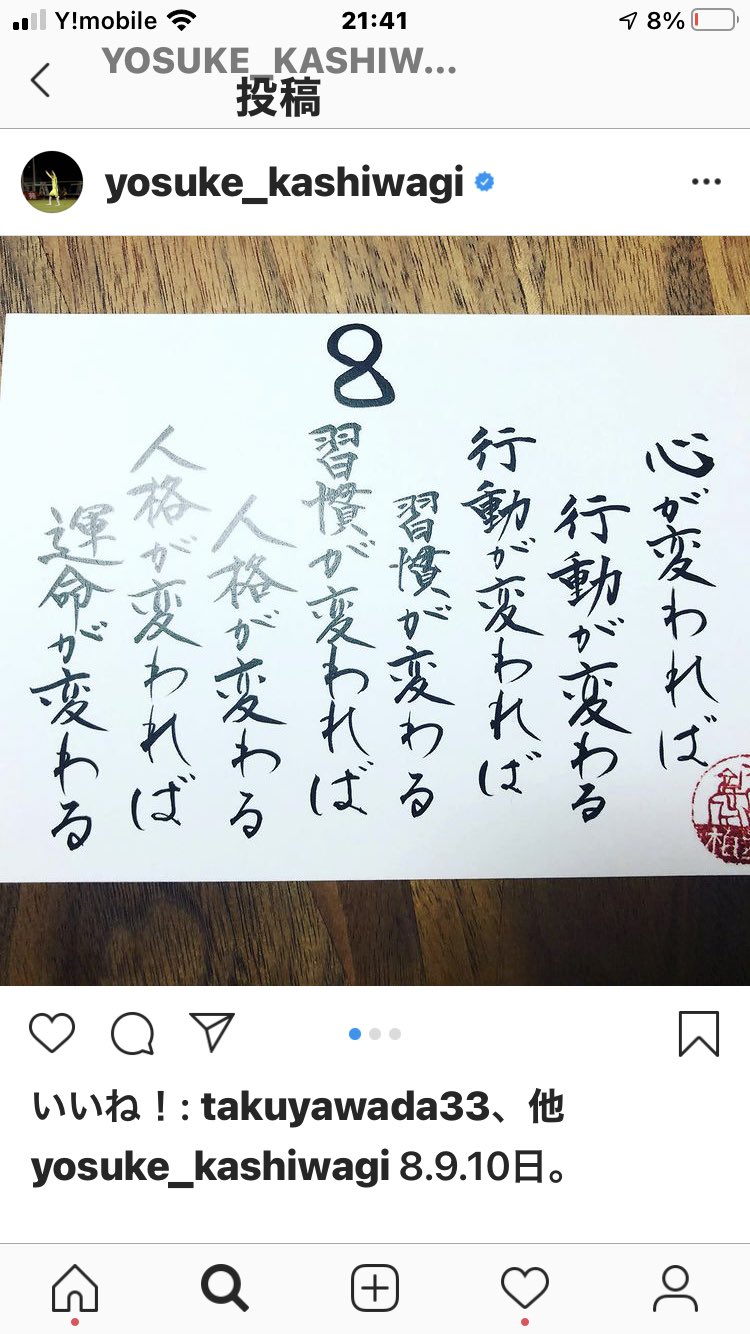 Y!mobile 21:41 8%
YOSUKE_KASHIW...
投稿
yosuke_kashiwagi
8
心が変われば
行動が変わる
行動が変われば
習慣が変わる
習慣が変われば
人格が変わる
人格が変われば
運命が変わる
いいね！: takuyawada33、他
yosuke_kashiwagi 8.9.10日。